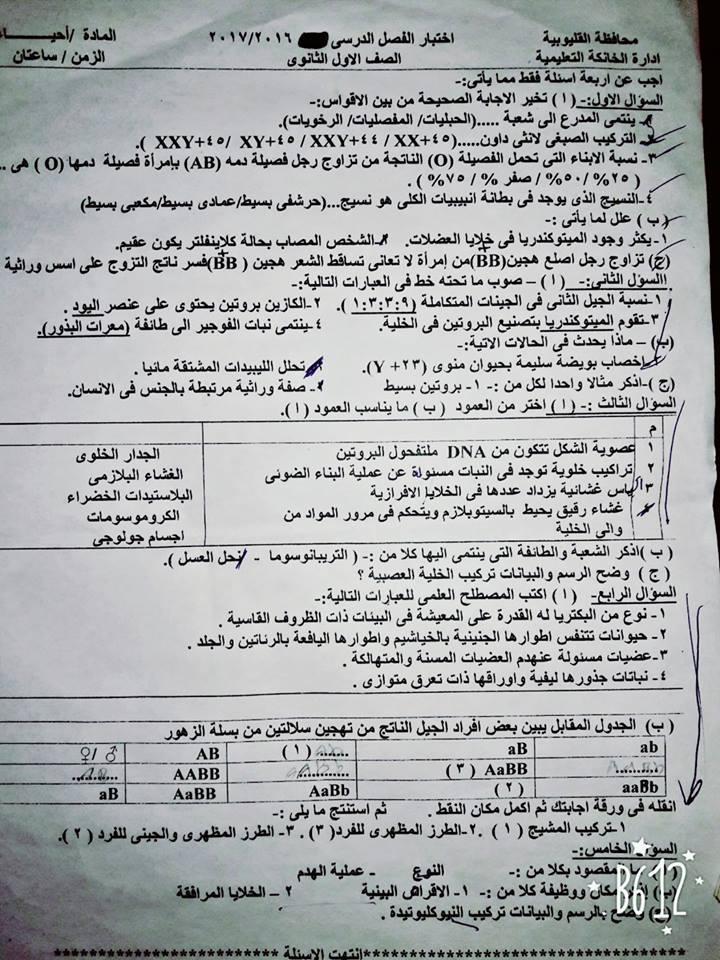 محافظة القليوبية
اختبار الفصل الدرسى ٢٠١٧/٢٠١٦
المادة /أحيـــاء
ادارة الخانكة التعليمية
الصف الاول الثانوى
الزمن / ساعتان
اجب عن اربعة اسئلة فقط مما يأتى:-
السؤال الاول:- (١) تخير الاجابة الصحيحة من بين الاقواس:-
ينتمى المدرع الى شعبة .....(الحبليات/ المفصليات/ الرخويات).
التركيب الصبغى لانثى داون.....(٤٥+XX / ٤٤+XXY / ٤٥+XY /٤٥+XXY ).
٣- نسبة الابناء التى تحمل الفصيلة (O) الناتجة من تزاوج رجل فصيلة دمه (AB) بإمرأة فصيلة دمها (O) هى ..
( ٢٥% /٥٠% / صفر % / ٧٥% ) .
٤-النسيج الذى يوجد فى بطانة انيبيبات الكلى هو نسيج...(حرشفى بسيط/عمادى بسيط/مكعبى بسيط)
(ب) علل لما يأتى :-
١-يكثر وجود الميتوكندريا فى خلايا العضلات. الشخص المصاب بحالة كلاينفلتر يكون عقيم.
(ج) تزاوج رجل اصلع هجين(BB⁺)من إمرأة لا تعانى تساقط الشعر هجين (BB⁺)فسر ناتج التزوج على اسس وراثية
السؤال الثانى:- (١) – صوب ما تحته خط فى العبارات التالية:-
١-نسبة الجيل الثانى فى الجينات المتكاملة (١:٣:٣:٩). ٢-الكازين بروتين يحتوى على عنصر اليود .
٣-تقوم الميتوكندريا بتصنيع البروتين فى الخلية. ٤-ينتمى نبات الفوجير الى طائفة (معرات البذور).
(ب) – ماذا يحدث فى الحالات الاتية:-
إخصاب بويضة سليمة بحيوان منوى (٢٣+ Y). تحلل الليبيدات المشتقة مائيا .
(ج)-اذكر مثالا واحدا لكل من :- ١- بروتين بسيط - صفة وراثية مرتبطة بالجنس فى الانسان.
السؤال الثالث:- (١) اختر من العمود (ب) ما يناسب العمود (١).
م
١ عصوية الشكل تتكون من DNA ملتفحول البروتين الجدار الخلوى
٢ تراكيب خلوية توجد فى النبات مسئولة عن عملية البناء الضوئى الغشاء البلازمى
٣ اكياس غشائية يزداد عددها فى الخلايا الافرازية البلاستيدات الخضراء
غشاء رقيق يحيط بالسيتوبلازم ويتحكم فى مرور المواد من الكروموسومات
والى الخلية اجسام جولوجى
(ب) اذكر الشعبة والطائفة التى ينتمى اليها كلا من :- ( التريبانوسوما - نحل العسل ).
(ج) وضح الرسم والبيانات تركيب الخلية العصبية ؟
السؤال الرابع- (١) اكتب المصطلح العلمى للعبارات التالية:-
١- نوع من البكتريا له القدرة على المعيشة فى البيئات ذات الظروف القاسية .
٢- حيوانات تتنفس اطوارها الجنينية بالخياشيم واطوارها اليافعة بالرئاتين والجلد .
٣-عضيات مسئولة عنهدم العضيات المسنة والمتهالكة .
٤- نباتات جذورها ليفية واوراقها ذات تعرق متوازى .
(ب) الجدول المقابل يبين بعض افراد الجيل الناتج من تهجين سلالتين من بسلة الزهور
ab aB (١)....... AB ♂/♀
.......... AaBB (٣) AABB ..........
aaBb (٢) AaBb AaBB aB
انقله فى ورقة اجابتك ثم اكمل مكان النقط . ثم استنتج ما يلى :-
١-تركيب المشيج (١) .٢-الطرز المظهرى للفرد(٣) .٣- الطرز المظهرى والجينى للفرد (٢).
السؤال الخامس:-
المقصود بكلا من :- النوع - عملية الهدم
(ب) مكان ووظيفة كلا من :- ١- الاقراص البينية ٢ – الخلايا المرافقة
وضح بالرسم والبيانات تركيب النيوكليوتيدة .
انتهت الاسئلة
B612